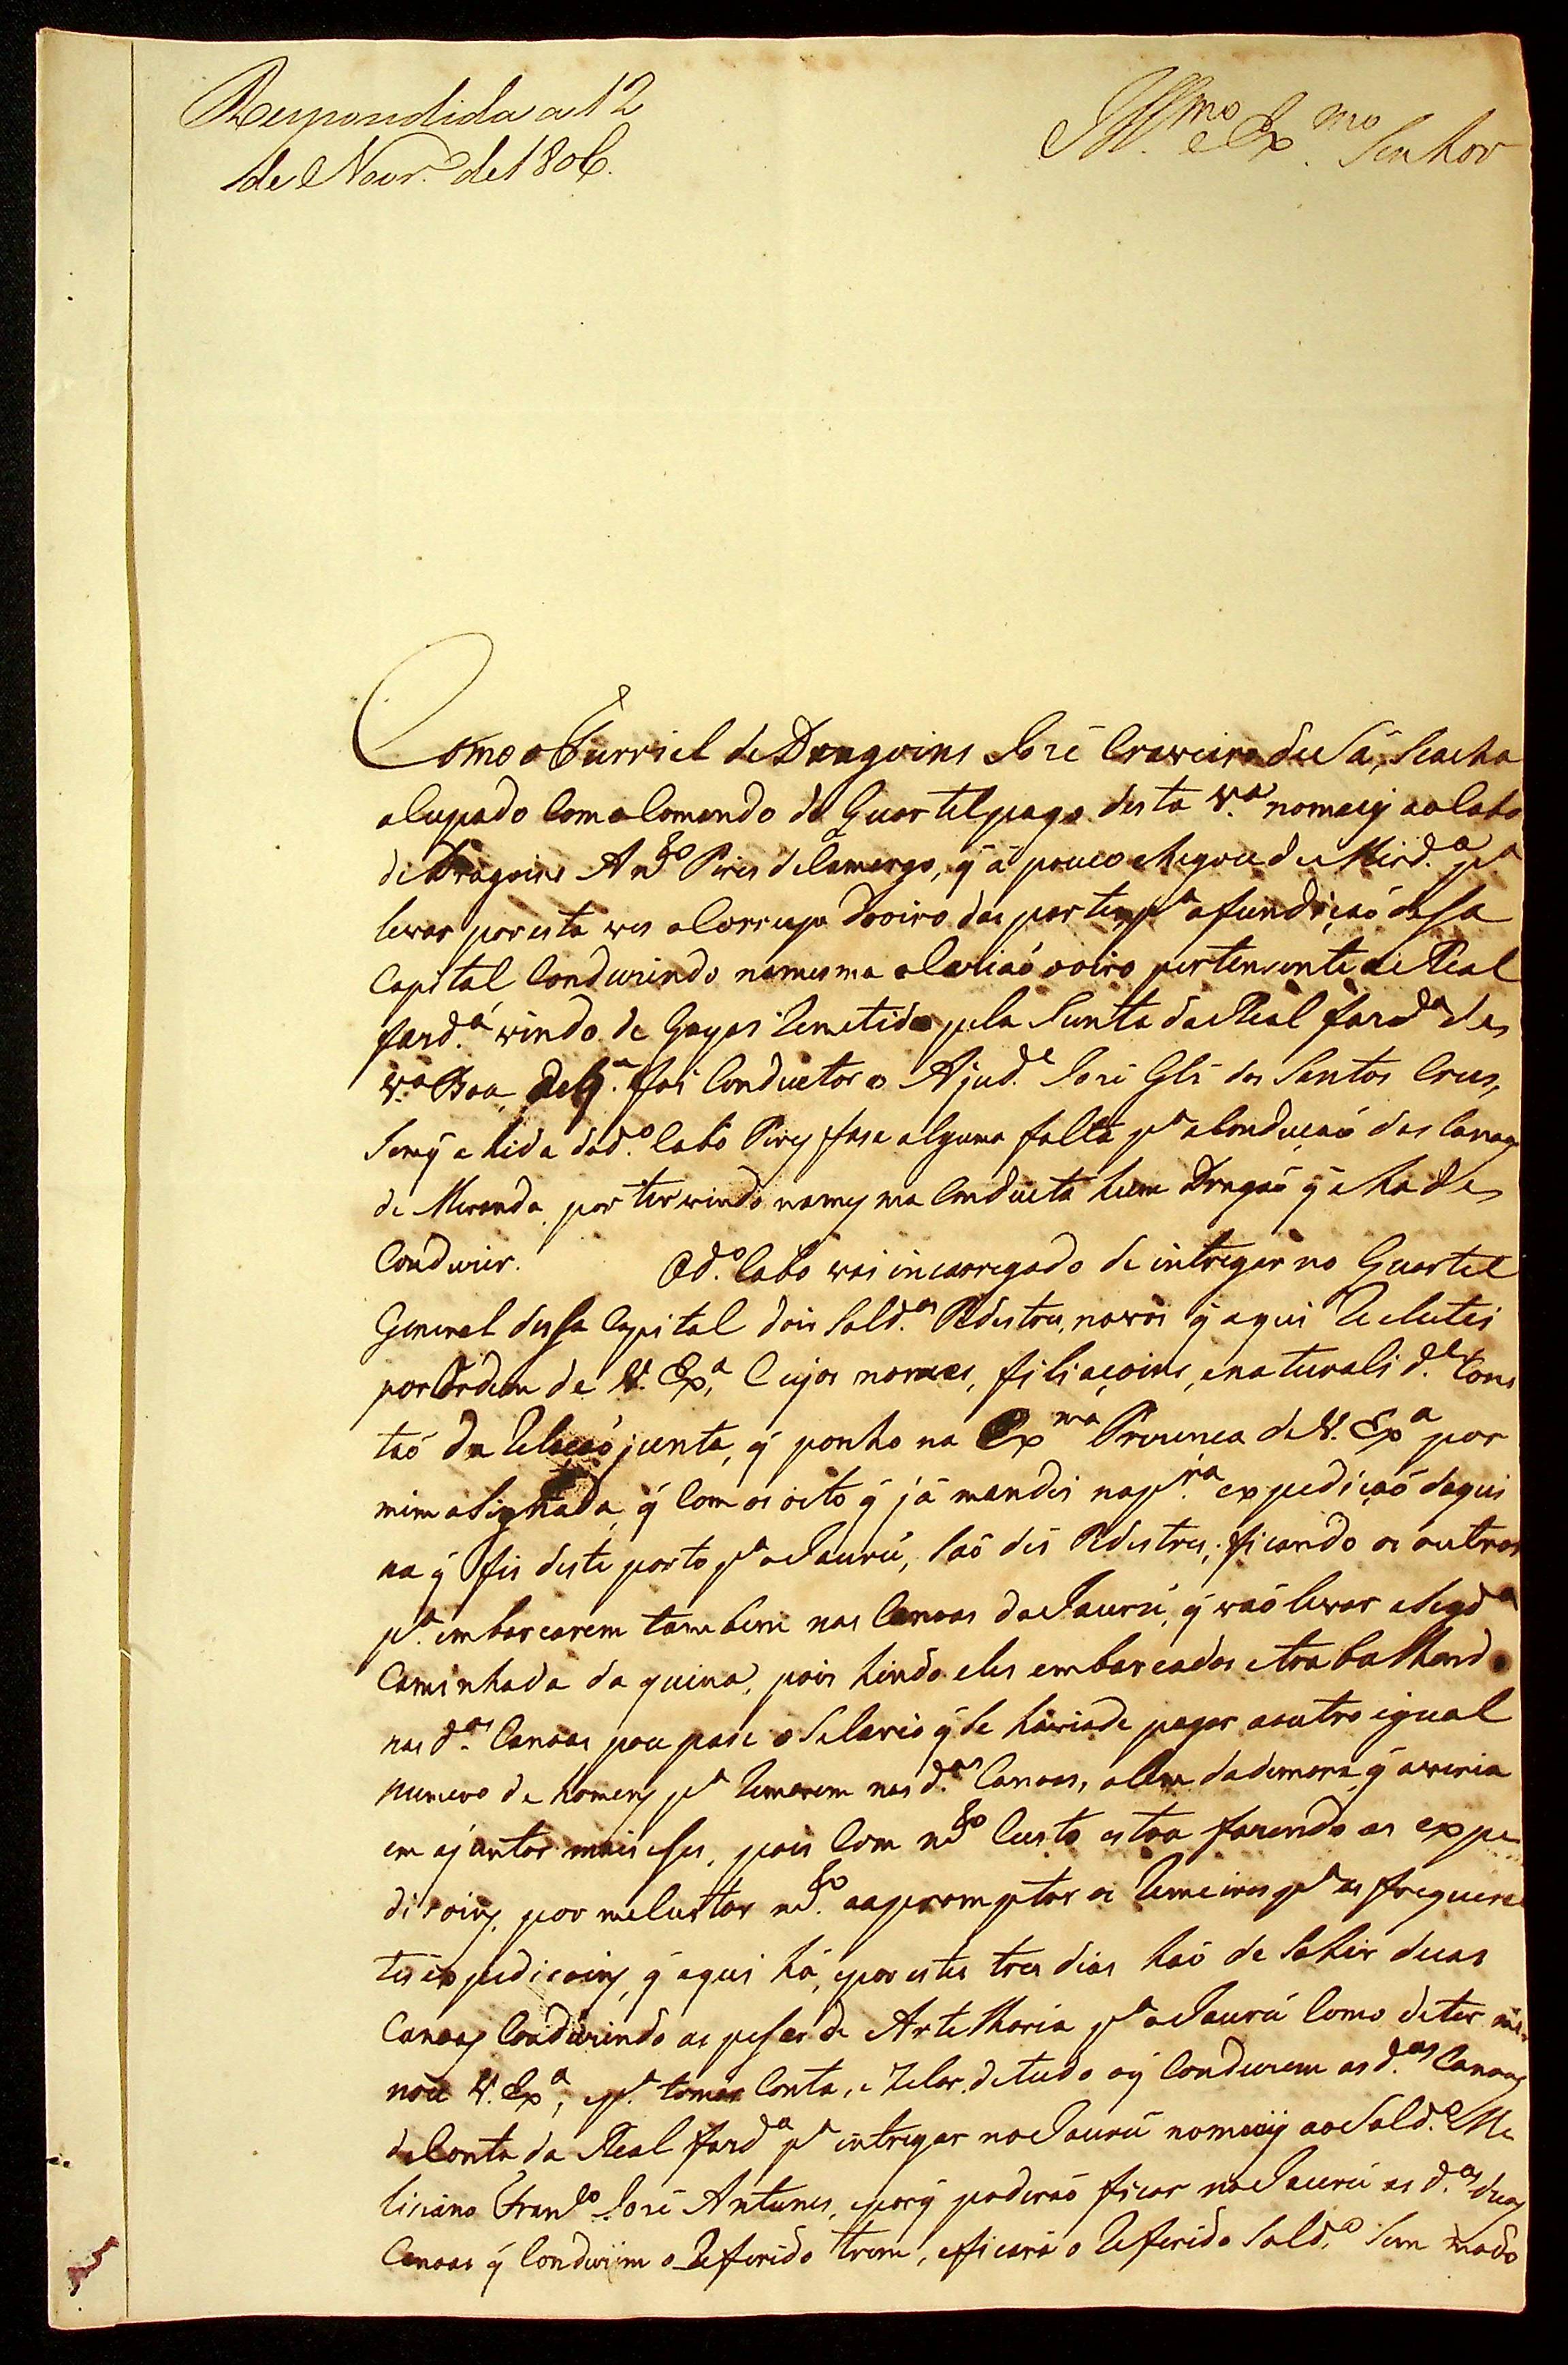 Respondida a 12
de Novr.º de 1806.
Illmo. e Exmo. Senhor
Como o Furriel de Dragoins José Craveiro de Sá, se acha
ocupado com o Comando do Quartel pago desta Vª nomeiy ao Cabo
de Dragoins Antº Pires de Camargo, q̃ á pouco chegou de Mirdª. pª
levar por esta ves a Corrupo do oiro das partes pª a fundição desa
Capital Conduzindo na mesma ocazião o oiro pertensente a Real
fazdª. vindo de Goyas remetido pela Junta da Real fazdª de
Vª Boa, de qm. foi Conductor o Ajude. José Glz dos Santos Crus,
sem q̃ a hida do dº. Cabo Pires fasa alguma falta pª a Condução das Canoas
de Miranda por ter vindo na mesma Conducta hum Dragaõ q̃ a ha de
Conduzir. O dº. Cabo vai incarregado de intregar no Quartel
General desa Capital dois Soldos. Pedestres, novos q̃ aqui recluteis
por Ordem de V. Exª, Cujos nomes, filiaçoins, e naturalide. Cons
taõ da relaçaõ junta, q̃ ponho na Exma Prezença de V. Exª por
mim asignada, q̃ Com os oito q̃ já mandei na prª. expediçaõ daqui
na q̃ fis deste porto pª o Jaurú, saõ des Pedestres, ficando os outros
pª. embarcarem tambem nas Canoas do Jaurú, q̃ vaõ levar a segdª
Caminhada da quina, pois hindo eles embarcados e trabalhando
nas dªs. Canoas poupase o Selario q̃ se havia de pagar a outro igual
numero de homens pª remarem nas dªs Canoas, alem da demora q̃ averia
em ajuntar mais eses, pois Com mtº Custo estou fazendo as expe
diçoins, por me Custar mtº. a apromptar os remeiros pª as frequen
tes expediçoins, q̃ aqui há, e por estes tres dias haõ de sahir duas
Canoas Conduzindo as pesas de Artelharia pª o Jaurú Como determi
nou V. Exª, e pª. tomar Conta, e Zelar de tudo o q̃ Conduzem as dªs Canoas
de Conta da Real fazdª pª intregar no Jaurú nomeiy ao Soldº. Me
liciano Franº José Antunes, e porq̃ poderaõ ficar no Jaurú as dªs duas
Canoas q̃ Conduzem o referido trem, e ficará o referido Soldº. sem modo